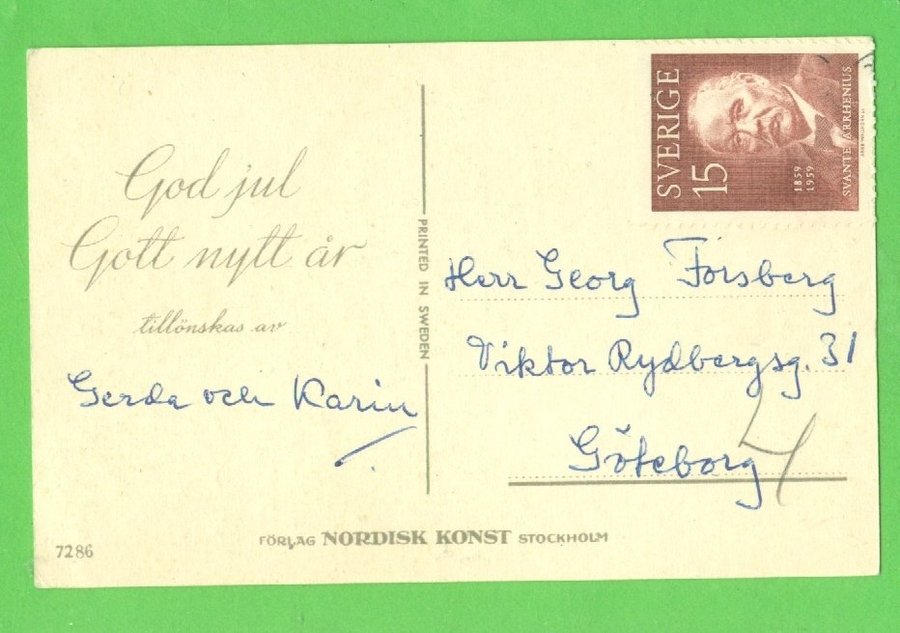 God jul
Gott nytt år
tillönskas av
Gerda och Karin
7286
PRINTED IN SWEDEN
FÖRLAG NORDISK KONST STOCKHOLM
SVERIGE
15
1859
1959
SVANTE ARRHENIUS
Herr Georg Forsberg
Viktor Rydbergsg. 31
Göteborg
4